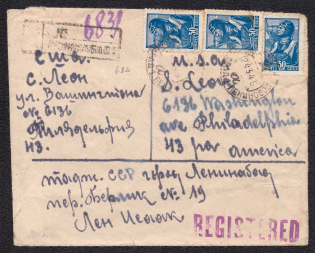 № 6831
США.
С. Леон
ул. Вашингтона
№ 6136
Филядельфия
43.
U.S.A
S. Leon
6136 Washington
ave Philadelphia
43 pa
america
тадж. ССР город Ленинабад
пер. Берлик № 19
Лен Исаак
REGISTERED
30
30
30